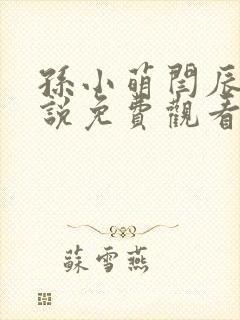 孫小萌閆辰
說免費觀看
蘇雪燕